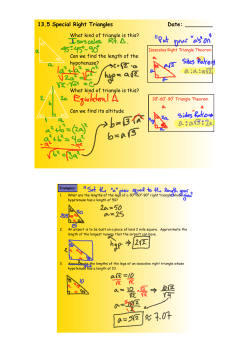 13.5 Special Right Triangles Date:
What kind of triangle is this?
"Put your "a's" on"
Isosceles Rt Δ.
45°-45°-90°
Isosceles Right Triangle Theorem
Can we find the length of the
hypotenuse?
c=√2·a
hyp = a√2
Sides Ratio
a : a : a√2
What kind of triangle is this?
Equilateral Δ
30°-60°-90° Triangle Theorem
Can we find its altitude
b = a√3
Sides Ratio
a : a√3 : 2a
a² + b² = (2a)²
Examples:
"Set the "a" part equal to the length given"
1. What are the lengths of the legs of a 30°-60°-90° right triangle
hypotenuse has a length of 50?
2a = 50
a = 25
2. An airport is to be built on a piece of land 2 mile square. Approximate the
length of the longest runway that the airport can have.
hyp → 2√2
3. Approximate the lengths of the legs of an isosceles right triangle whose
hypotenuse has a length of 10.
a√2 = 10
a = 5√2 ≈ 7.07